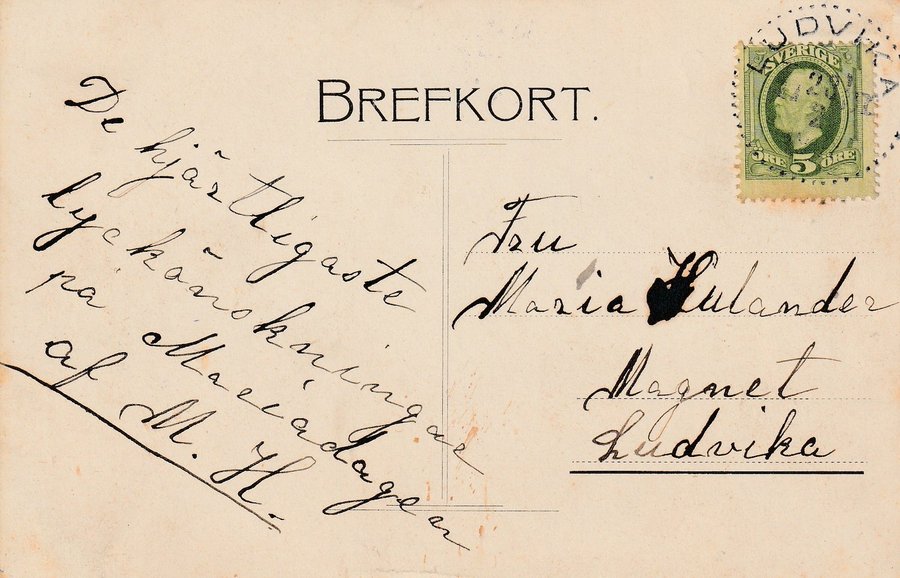 BREFKORT.
LUDVIKA
SVERIGE
ÖRE 5 ÖRE
De hjärtligaste
lyckönskningar
på Mariadagen
af M. H.
Fru
Maria Hulander
Magnet
Ludvika